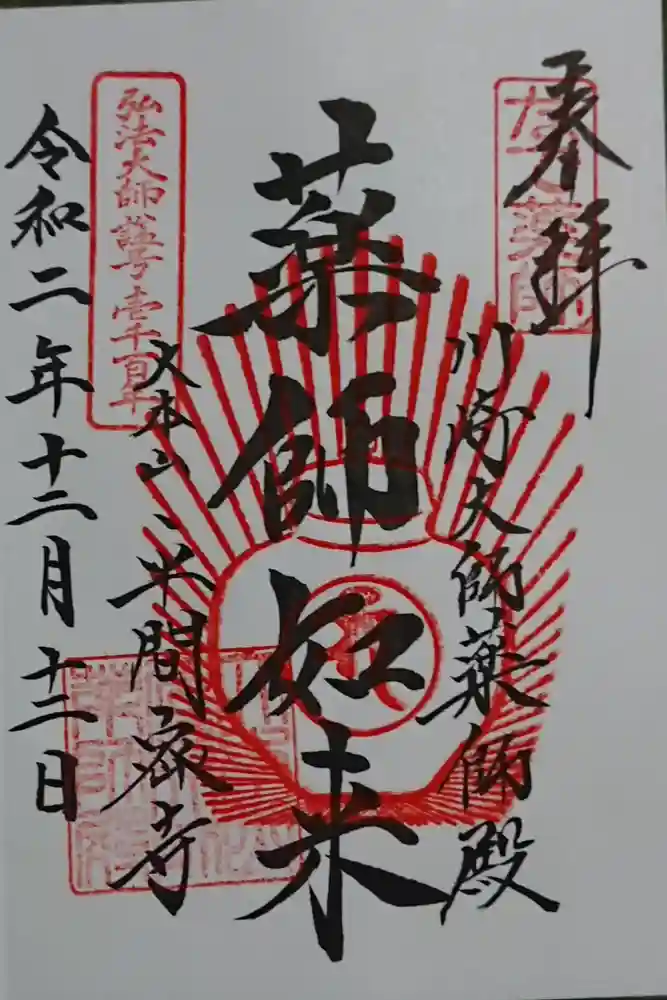 奉拝
なで薬師
川崎大師薬師殿
薬師如来
大本山 平間寺
弘法大師諡号壱千百年
令和二年十二月十二日